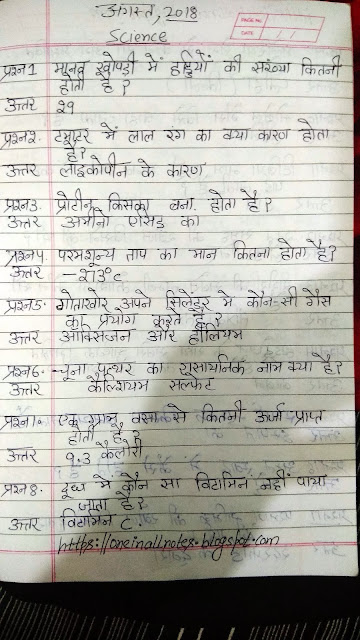 अगस्त, 2018
PAGE NO.
DATE
Science
प्रश्न1 मानव खोपड़ी में हड्डियों की संख्या कितनी
होती है ?
उत्तर २९
प्रश्न२. टमाटर में लाल रंग का क्या कारण होता
है ?
उत्तर लाइकोपीन के कारण
प्रश्न३. प्रोटीन किसका बना होता है ?
उत्तर अमीनो एसिड का
प्रश्न५. परमशून्य ताप का मान कितना होता है?
उत्तर -273°c
प्रश्न5. गोताखोर अपने सिलेंडर में कौन-सी गैस
का प्रयोग करते है ?
उत्तर ऑक्सिजन और हीलियम
प्रश्न6. चूना पत्थर का रासायनिक नाम क्या है?
उत्तर कैल्शियम सल्फेट
प्रश्न7. एक ग्राम वसा से कितनी ऊर्जा प्राप्त
होती है ?
उत्तर 9.3 कैलोरी
प्रश्न8. दूध में कौन सा विटामिन नहीं पाया
जाता है?
उत्तर विटामिन C.
https://oneinallnotes.blogspot.com